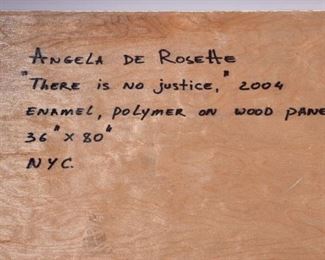 Angela de Rosette
"There is no justice," 2004
enamel, polymer on wood pane
36" x 80"
NYC